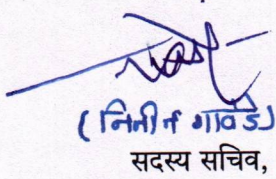 (नितीन गावडे)
सदस्य सचिव,